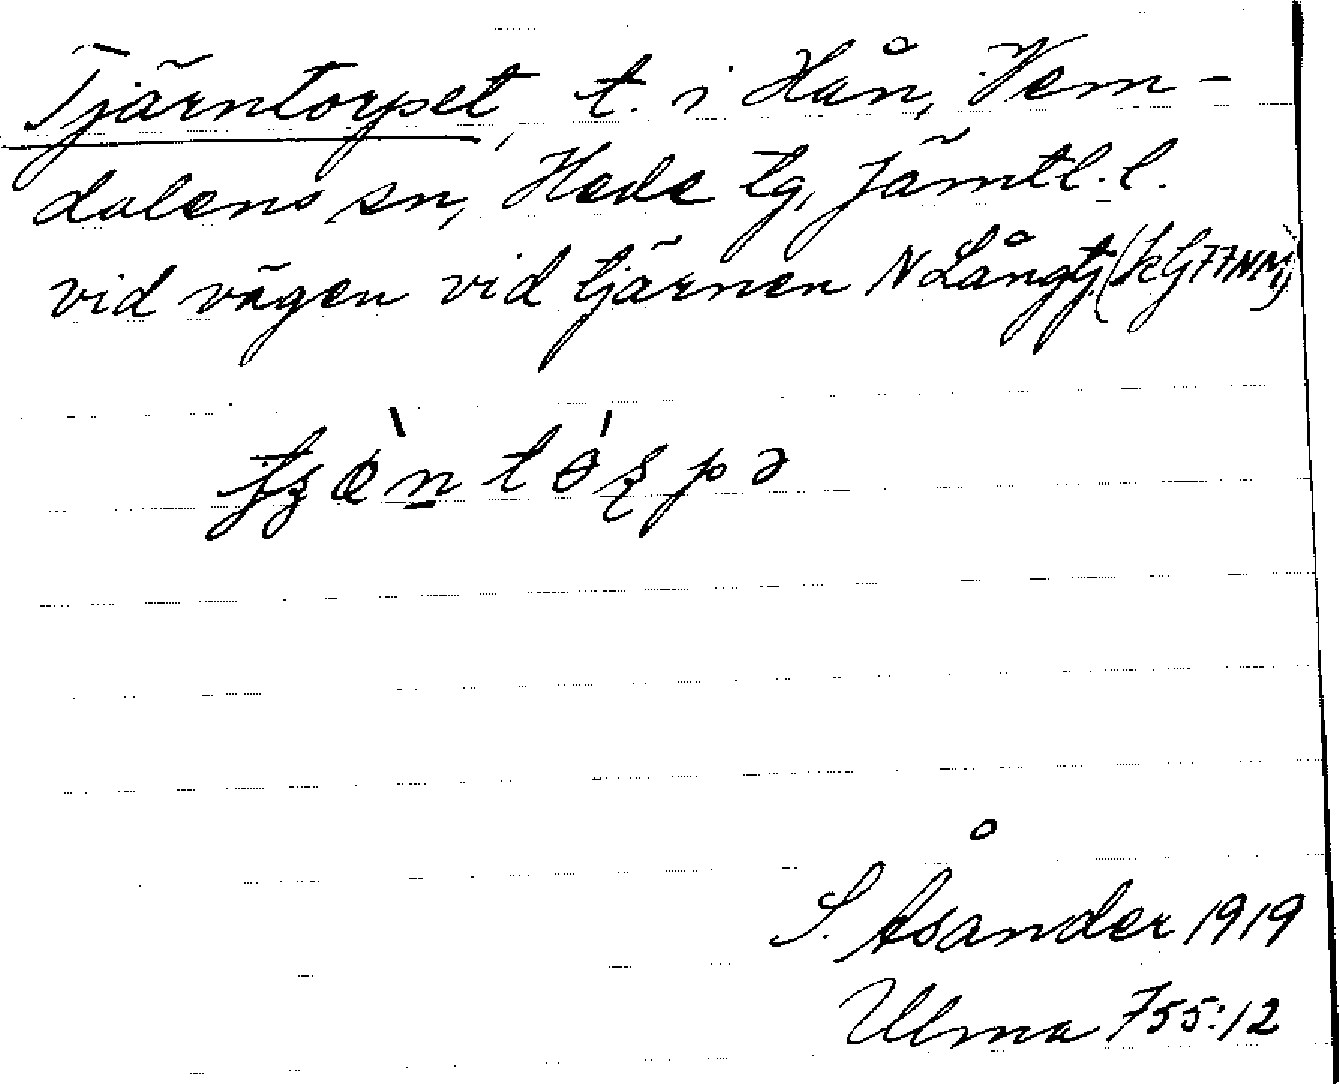 Tjärntorpet, t. i Hån, Vem-
dalens sn, Hede tg, Jämtl. l.
vid vägen vid tjärnen N Långtj.
S. Åsander 1919
Ulma 755:12